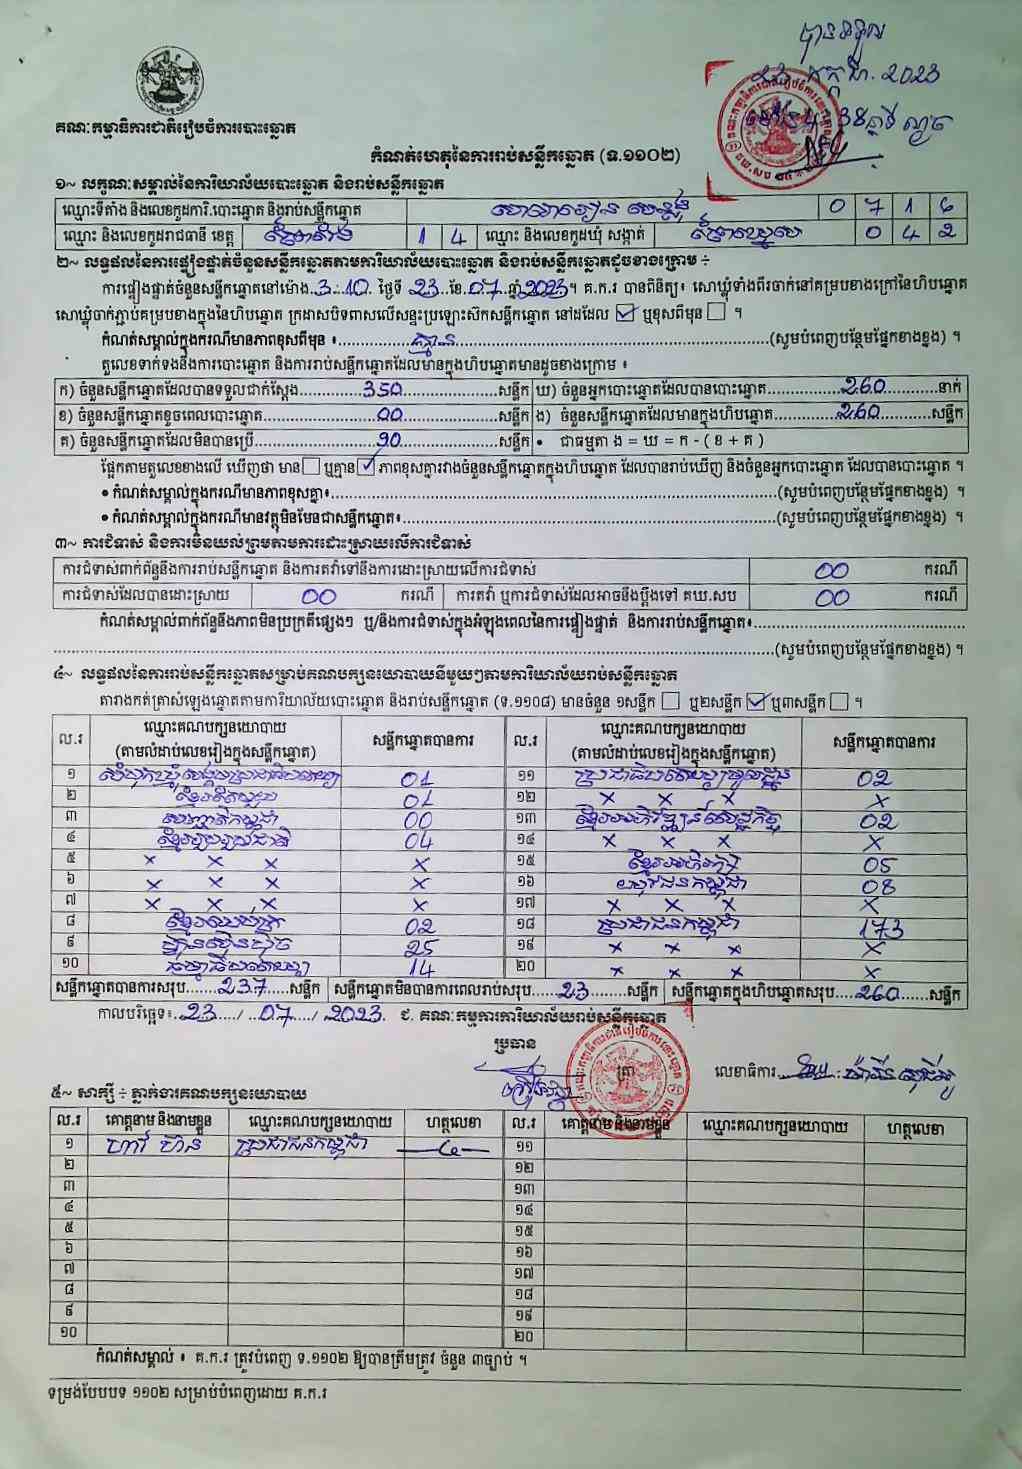 បានទទួល
23 កក្កដា. 2023
គណៈកម្មាធិការជាតិរៀបចំការបោះឆ្នោត
កំណត់ហេតុនៃការរាប់សន្លឹកឆ្នោត (ទ.១១០២)
១~ លក្ខណៈសម្គាល់នៃការិយាល័យបោះឆ្នោត និងរាប់សន្លឹកឆ្នោត
ឈ្មោះទីតាំង និងលេខកូដការិ.បោះឆ្នោត និងរាប់សន្លឹកឆ្នោត 0 7 1 6
ឈ្មោះ និងលេខកូដរាជធានី ខេត្ត ព្រៃវែង 1 4 ឈ្មោះ និងលេខកូដឃុំ សង្កាត់ 0 4 2
២~ លទ្ធផលនៃការផ្ទៀងផ្ទាត់ចំនួនសន្លឹកឆ្នោតតាមការិយាល័យបោះឆ្នោត និងរាប់សន្លឹកឆ្នោតដូចខាងក្រោម ÷
ការផ្ទៀងផ្ទាត់ចំនួនសន្លឹកឆ្នោតនៅម៉ោង 3:10 ថ្ងៃទី 23 ខែ 07 ឆ្នាំ 2023 ។ គ.ក.រ បានពិនិត្យ៖ សោឃ្លុំទាំងពីរចាក់នៅគម្របខាងក្រៅនៃហិបឆ្នោត
សោឃ្លុំចាក់ភ្ជាប់គម្របខាងក្នុងនៃហិបឆ្នោត ក្រដាសបិទពាសលើសន្ទះប្រឡោះសឹកសន្លឹកឆ្នោត នៅដដែល ☑ ឬខុសពីមុន ☐ ។
កំណត់សម្គាល់ក្នុងករណីមានភាពខុសពីមុន ៖ គ្មាន (សូមបំពេញបន្ថែមផ្នែកខាងខ្នង) ។
តួលេខទាក់ទងនឹងការបោះឆ្នោត និងការរាប់សន្លឹកឆ្នោតដែលមានក្នុងហិបឆ្នោតមានដូចខាងក្រោម ៖
ក) ចំនួនសន្លឹកឆ្នោតដែលបានទទួលជាក់ស្តែង 350 សន្លឹក ឃ) ចំនួនអ្នកបោះឆ្នោតដែលបានបោះឆ្នោត 260 នាក់
ខ) ចំនួនសន្លឹកឆ្នោតខូចពេលបោះឆ្នោត 00 សន្លឹក ង) ចំនួនសន្លឹកឆ្នោតដែលមានក្នុងហិបឆ្នោត 260 សន្លឹក
គ) ចំនួនសន្លឹកឆ្នោតដែលមិនបានប្រើ 90 សន្លឹក • ជាធម្មតា ង = ឃ = ក - ( ខ + គ )
ផ្អែកតាមតួលេខខាងលើ ឃើញថា មាន ☐ ឬគ្មាន ☑ ភាពខុសគ្នារវាងចំនួនសន្លឹកឆ្នោតក្នុងហិបឆ្នោត ដែលបានរាប់ឃើញ និងចំនួនអ្នកបោះឆ្នោត ដែលបានបោះឆ្នោត ។
• កំណត់សម្គាល់ក្នុងករណីមានភាពខុសគ្នា៖ (សូមបំពេញបន្ថែមផ្នែកខាងខ្នង) ។
• កំណត់សម្គាល់ក្នុងករណីមានវត្ថុមិនមែនជាសន្លឹកឆ្នោត៖ (សូមបំពេញបន្ថែមផ្នែកខាងខ្នង) ។
៣~ ការជំទាស់ និងការមិនយល់ព្រមតាមការដោះស្រាយលើការជំទាស់
ការជំទាស់ពាក់ព័ន្ធនឹងការរាប់សន្លឹកឆ្នោត និងការតវ៉ាទៅនឹងការដោះស្រាយលើការជំទាស់ 00 ករណី
ការជំទាស់ដែលបានដោះស្រាយ 00 ករណី ការតវ៉ា ឬការជំទាស់ដែលអាចនឹងប្តឹងទៅ គឃ.សប 00 ករណី
កំណត់សម្គាល់ពាក់ព័ន្ធនឹងភាពមិនប្រក្រតីផ្សេងៗ ឬ/និងការជំទាស់ក្នុងអំឡុងពេលនៃការផ្ទៀងផ្ទាត់ និងការរាប់សន្លឹកឆ្នោត៖
(សូមបំពេញបន្ថែមផ្នែកខាងខ្នង) ។
៤~ លទ្ធផលនៃការរាប់សន្លឹកឆ្នោតសម្រាប់គណបក្សនយោបាយនីមួយៗតាមការិយាល័យរាប់សន្លឹកឆ្នោត
តារាងកត់ត្រាសំឡេងឆ្នោតតាមការិយាល័យបោះឆ្នោត និងរាប់សន្លឹកឆ្នោត (ទ.១១០៨) មានចំនួន ១សន្លឹក ☐ ឬ២សន្លឹក ☑ ឬ៣សន្លឹក ☐ ។
ល.រ ឈ្មោះគណបក្សនយោបាយ (តាមលំដាប់លេខរៀងក្នុងសន្លឹកឆ្នោត) សន្លឹកឆ្នោតបានការ ល.រ ឈ្មោះគណបក្សនយោបាយ (តាមលំដាប់លេខរៀងក្នុងសន្លឹកឆ្នោត) សន្លឹកឆ្នោតបានការ
១ សំបុកឃ្មុំសង្គមប្រជាធិបតេយ្យ 01 ១១ ប្រជាធិបតេយ្យមូលដ្ឋាន 02
២ ខ្មែរតែមួយ 01 ១២ × × × ×
៣ សញ្ជាតិកម្ពុជា 00 ១៣ ខ្មែរអភិវឌ្ឍន៍សេដ្ឋកិច្ច 02
៤ ខ្មែររួបរួមជាតិ 04 ១៤ × × × ×
៥ × × × × ១៥ ខ្មែរអភិរក្ស 05
៦ × × × × ១៦ យុវជនកម្ពុជា 08
៧ × × × × ១៧ × × × ×
៨ ខ្មែរឈប់ក្រ 02 ១៨ ប្រជាជនកម្ពុជា 173
៩ ហ្វ៊ុនស៊ិនប៉ិច 25 ១៩ × × × ×
១០ ធម្មាធិបតេយ្យ 14 ២០ × × × ×
សន្លឹកឆ្នោតបានការសរុប 237 សន្លឹក សន្លឹកឆ្នោតមិនបានការពេលរាប់សរុប 23 សន្លឹក សន្លឹកឆ្នោតក្នុងហិបឆ្នោតសរុប 260 សន្លឹក
កាលបរិច្ឆេទ៖ 23 / 07 / 2023 ជ. គណៈកម្មការការិយាល័យរាប់សន្លឹកឆ្នោត
ប្រធាន
ត្រា លេខាធិការ
៥~ សាក្សី ÷ ភ្នាក់ងារគណបក្សនយោបាយ
ល.រ គោត្តនាម និងនាមខ្លួន ឈ្មោះគណបក្សនយោបាយ ហត្ថលេខា ល.រ គោត្តនាម និងនាមខ្លួន ឈ្មោះគណបក្សនយោបាយ ហត្ថលេខា
១ ប្រជាជនកម្ពុជា ១១
២ ១២
៣ ១៣
៤ ១៤
៥ ១៥
៦ ១៦
៧ ១៧
៨ ១៨
៩ ១៩
១០ ២០
កំណត់សម្គាល់ ៖ គ.ក.រ ត្រូវបំពេញ ទ.១១០២ ឱ្យបានត្រឹមត្រូវ ចំនួន ៣ច្បាប់ ។
ទម្រង់បែបបទ ១១០២ សម្រាប់បំពេញដោយ គ.ក.រ